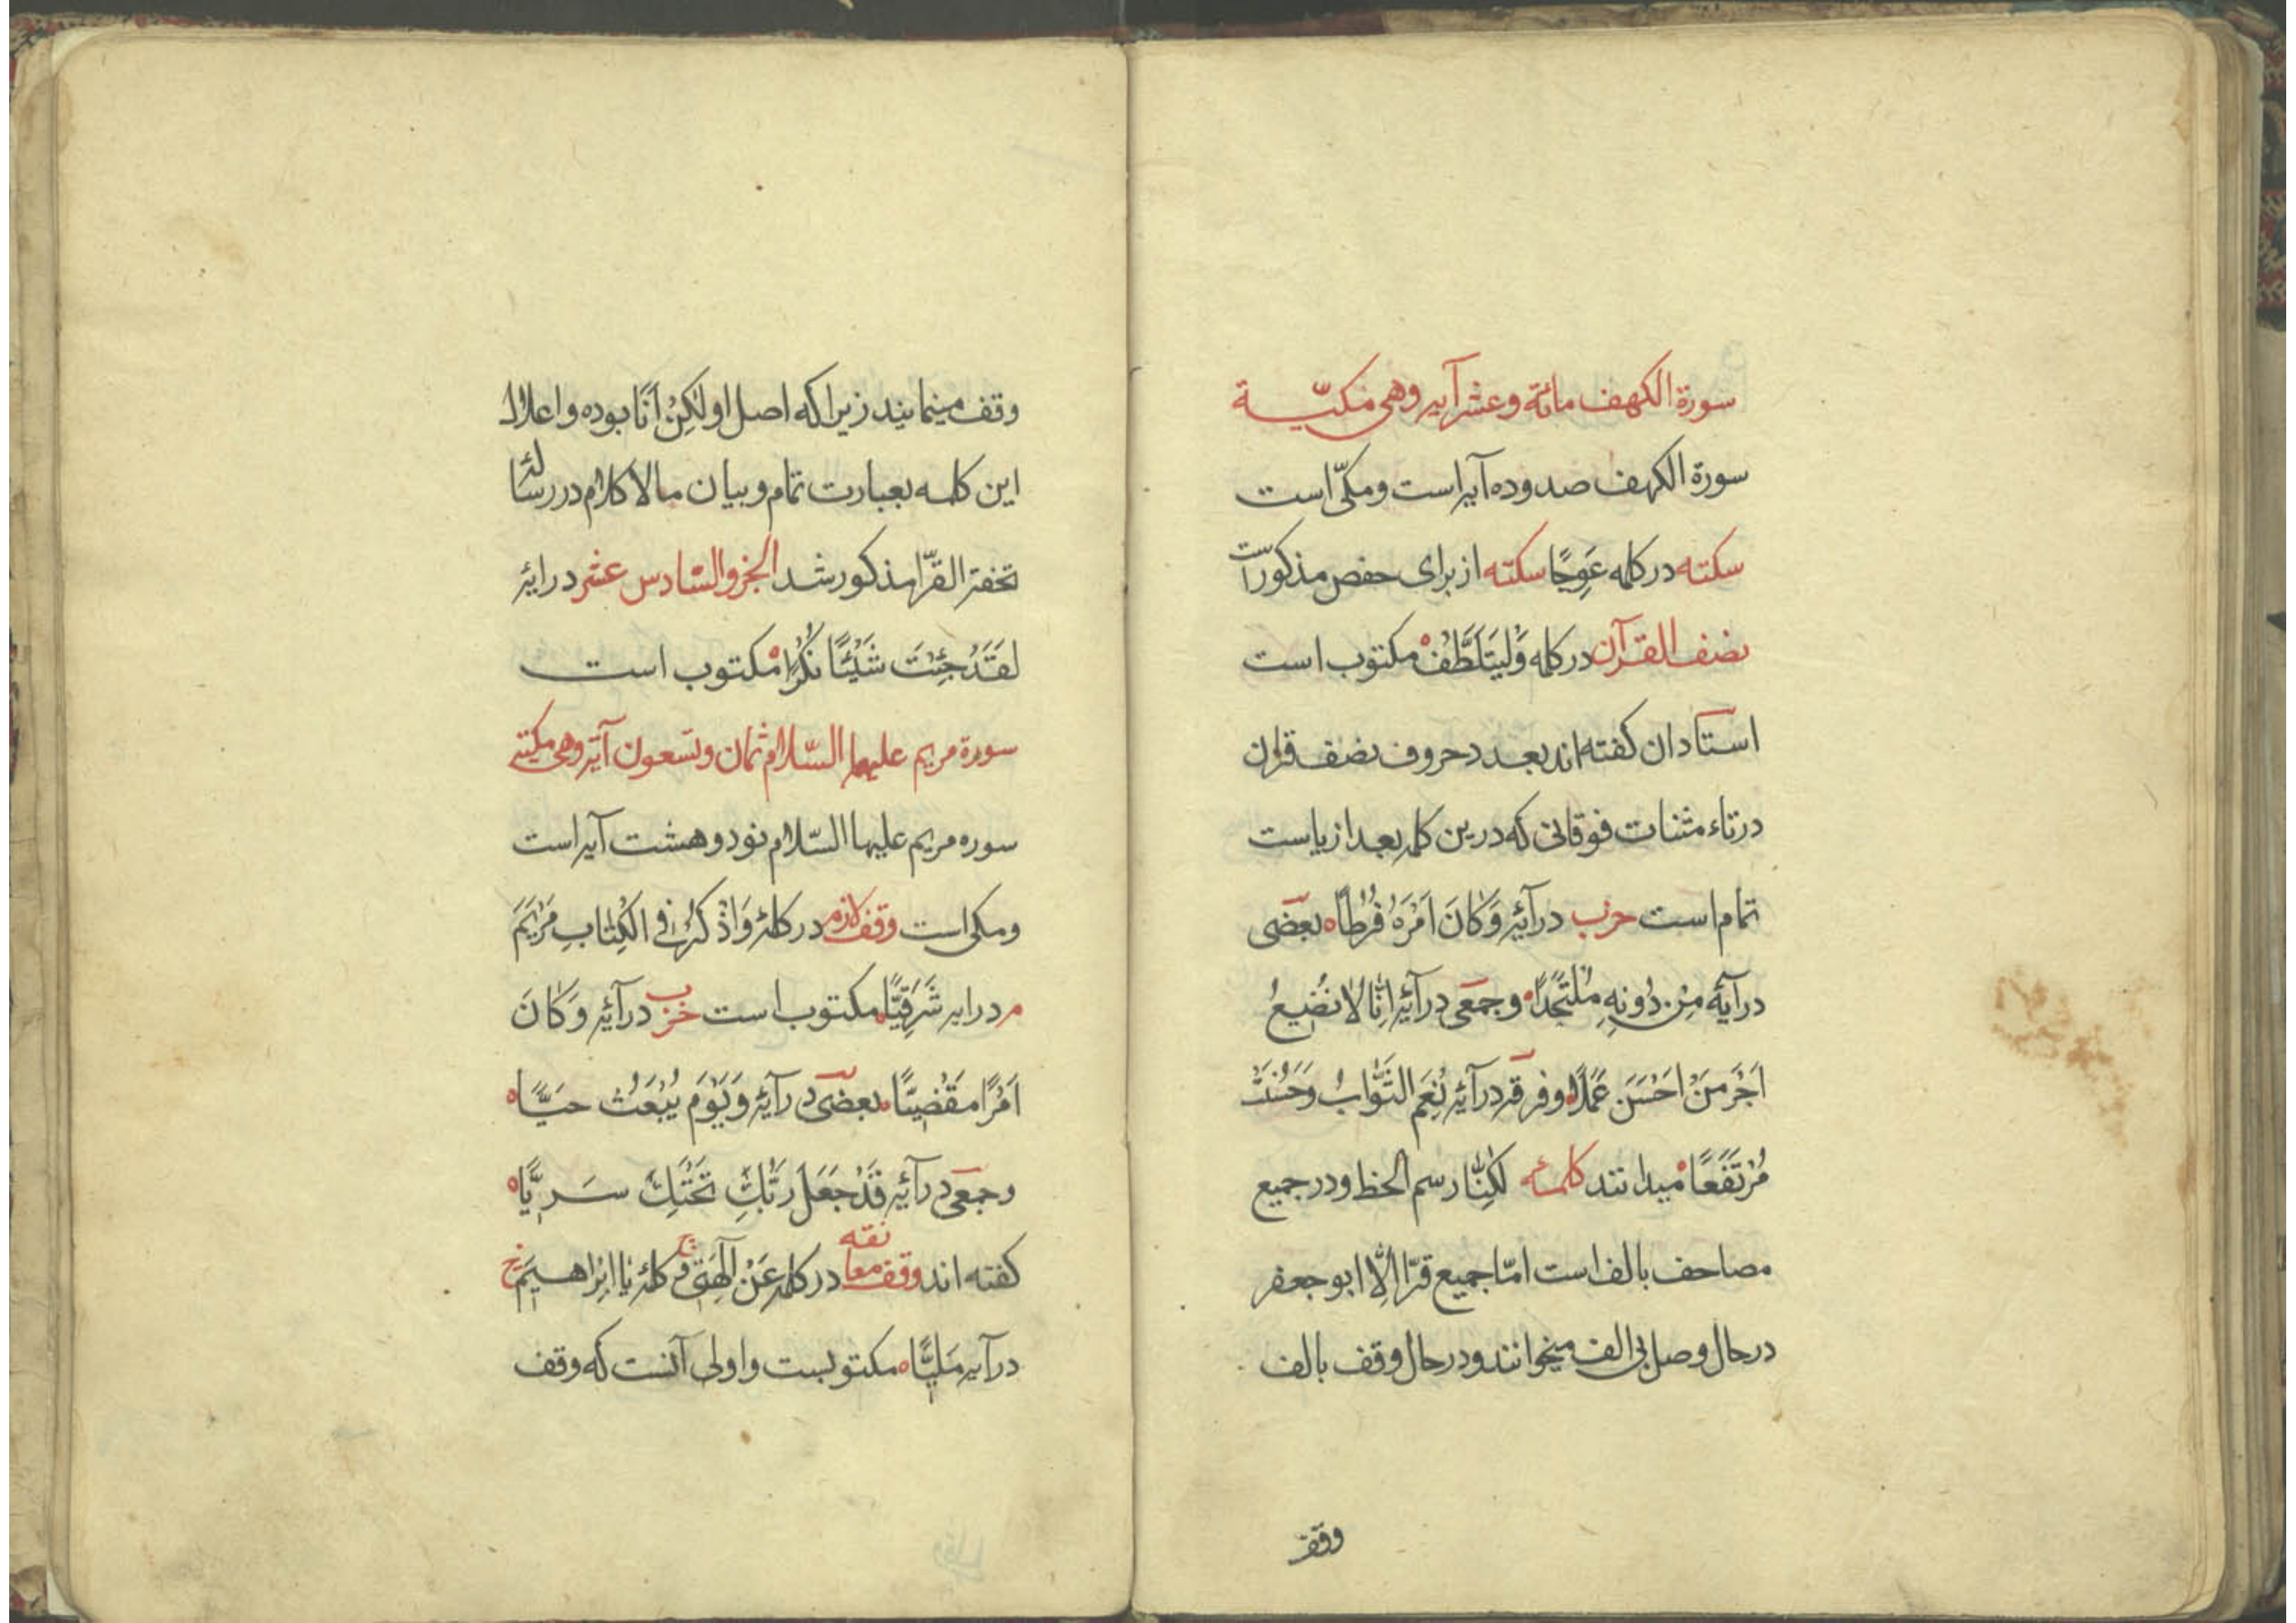 سورة الكهف مائة وعشر آیه وهی مکیّة
سورة الکهف صد وده آیه است ومکّی است
سکته در کلمه عِوَجًا سکته از برای حفص مذکورست
نصف القرآن در کلمه وَلْيَتَلَطَّفْ مکتوب است
استادان کفته اند بعدد حروف نصف قران
در تاء مثنات فوقانی که درین کلمه بعد از یاست
تمام است حزب در آیهٔ وَكَانَ اَمْرُهُ فُرُطًا بعضی
در آیهٔ مِنْ دُونِهِ مُلْتَحَدًا وجمعی در آیهٔ اِنَّا لَا نُضِيعُ
اَجْرَ مَنْ اَحْسَنَ عَمَلًا وفرقه در آیهٔ نِعْمَ الثَّوَابُ وَحَسُنَتْ
مُرْتَفَقًا میدانند کلمهٔ لٰكِنَّا رسم الخط ودر جمیع
مصاحف بالف است امّا جمیع قرّا اِلَّا ابو جعفر
در حال وصل بی الف میخوانند ودر حال وقف بالف
وقف
وقف مینمایند زیرا که اصل او لٰكِنْ اَنَا بوده واعلال
این کلمه بعبارت تمام وبیان مالا کلام در رسالهٔ
تحفة القرّا مذکور شد الجزو السّادس عشر در ایهٔ
لَقَدْ جِئْتَ شَيْئًا نُكْرًا مکتوب است
سورة مریم علیها السّلام ثمان وتسعون آیة وهی مکیة
سوره مریم علیها السّلام نود وهشت آیه است
ومکی است وقف لازم در کلمهٔ وَاذْكُرْ فِي الْكِتَابِ مَرْيَمَ
م در ایه شَرْقِيًّا مکتوب است حزب در آیهٔ وَكَانَ
اَمْرًا مَقْضِيًّا بعضی در آیهٔ وَيَوْمَ يُبْعَثُ حَيًّا
وجمعی در آیه قَدْ جَعَلَ رَبُّكِ تَحْتَكِ سَرِيًّا
کفته اند وقف معانقه در کلمه عَنْ اٰلِهَتِي و کلمهٔ يَا اِبْرَاهِيمُ
در آیه مَلِيًّا مکتوبست واولی آنست که وقف